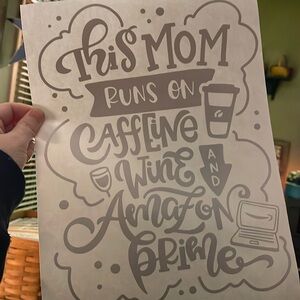 This MOM
RUNS ON
CAFFEINE
Wine AND
Amazon
prime